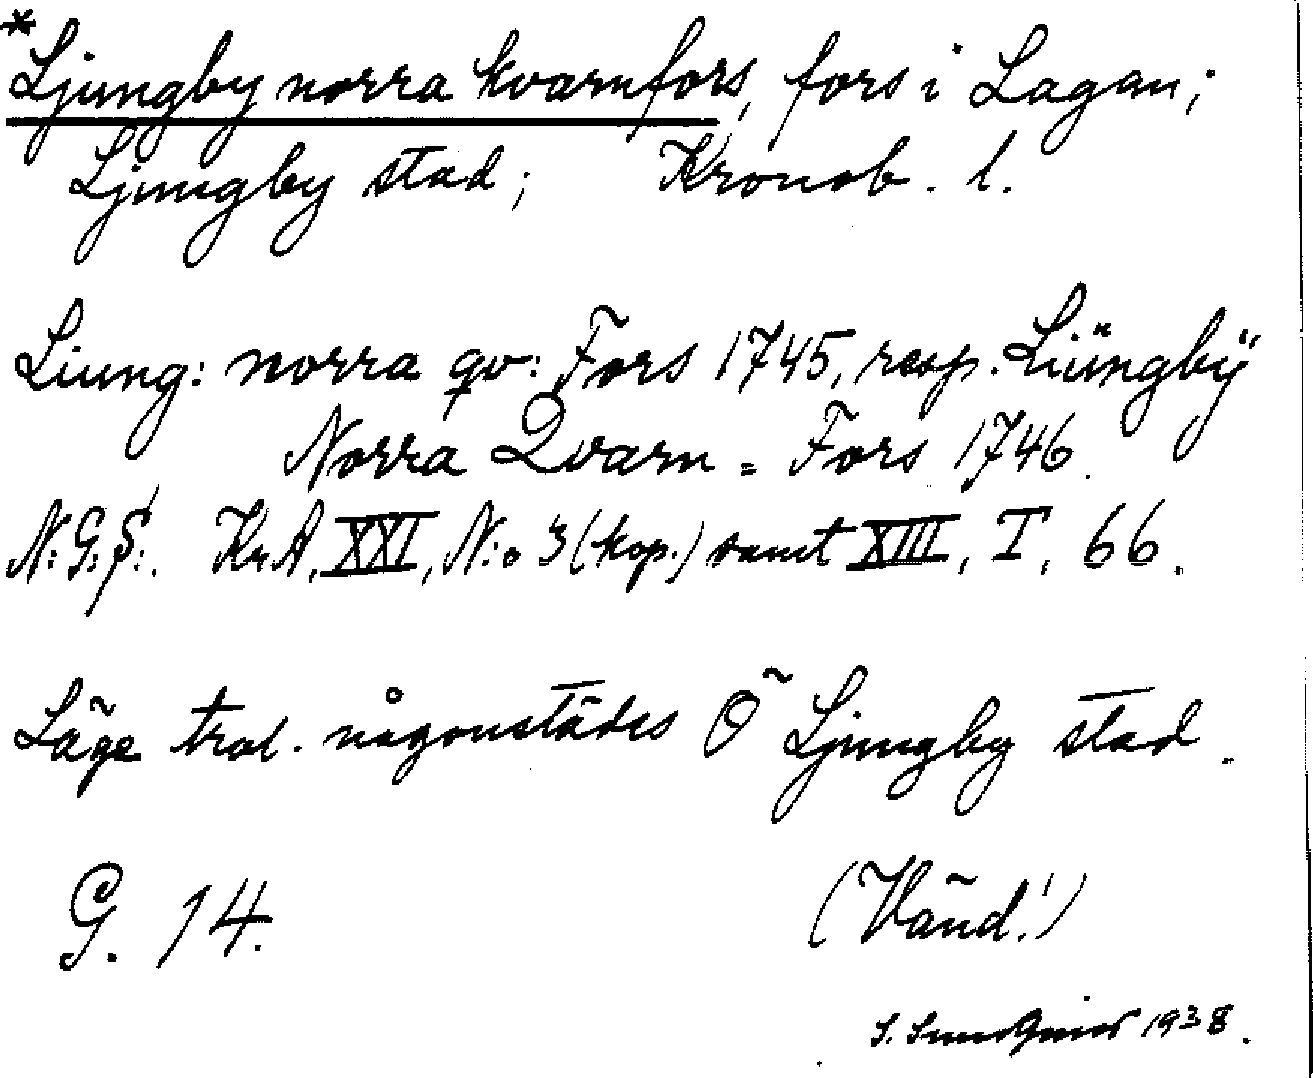 *Ljungby norra kvarnfors, fors i Lagan;
Ljungby stad; Kronob. l.
Liung: norra qv: Fors 1745, resp. Liüngbÿ
Norra Qvarn = Fors 1746.
N:G:S:. Kr.A. XXI, N:o 3 (kop.) samt XIII, I, 66.
Läge trol. någonstädes Ö Ljungby stad.
G. 14.
(Vänd!)
S. 1938.